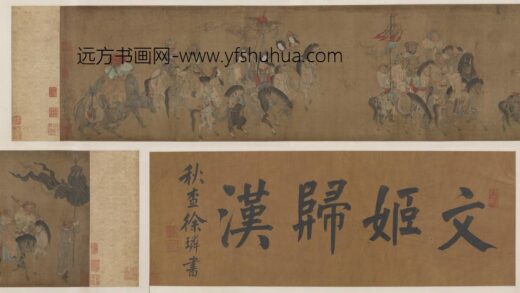 远方书画网-www.yfshuhua.com
文姬歸漢
秋查徐璘書